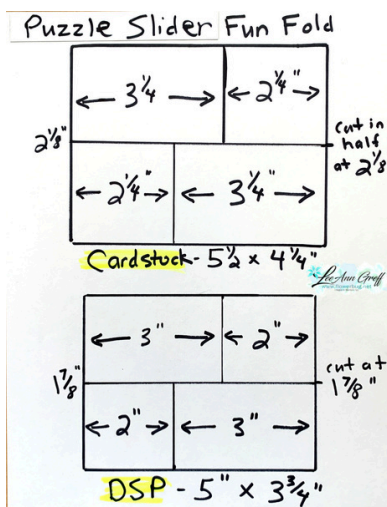 Puzzle Slider Fun Fold
← 3 1/4 → ← 2 1/4" →
2 1/8"
cut in
half
at 2 1/8
← 2 1/4" → ← 3 1/4" →
Cardstock - 5 1/2 x 4 1/4"
LeeAnn Greff
← 3" → ← 2" →
1 7/8"
cut at
1 7/8"
← 2" → ← 3" →
DSP - 5" x 3 3/4"